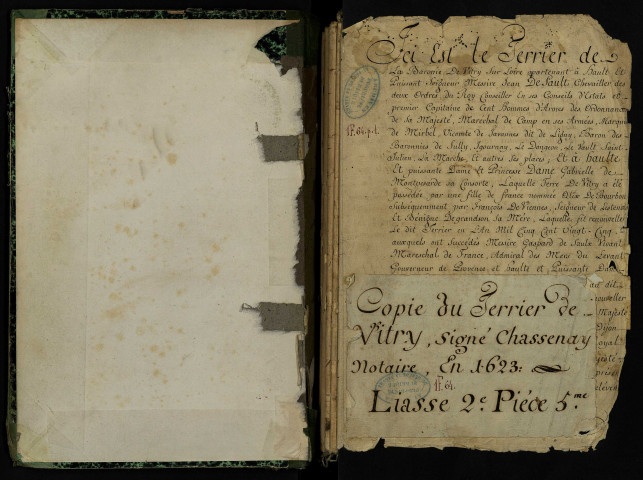 Ici Est le Terrier de
La Baronie De Vitry Sur Loire apartenant à Hault Et
Puissant Seigneur Messire Jean De Sault Chevailler des
deux Ordres du Roy Conseiller En ses Conseils D'Estats
premier Capitaine de Cent hommes d'Armes des Ordonnances
de Sa Majesté, Maréchal de Camp en ses Armées, Marquis
de Mirbel, Vicomte de Tavannes dit de Ligny, Baron des
Baronnies de Sully, Igournay, Le Dongeon, Le Vault Saint
Julien, La Marche, Et autres ses places, Et à haulte
Et puissante Dame Et Princesse Dame Gabrielle de
Montpesarde sa Consorte, Laquelle Terre De Vitry a été
possédée par une fille de france nommée Alix De Bourbon
subsequemment par François De Viennes, Seigneur de Listenois
Et Bénigne De grandson sa Mère, Laquelle fit renouveller
Le dit Terrier en L'An Mil Cinq Cent Vingt Cinq
auxquels ont Succedés Messire Gaspard de Saulx Vivant
Mareschal de France, Admiral des Mers du Levant
Gouverneur de Provence, et haulte et Puissante Dame
1F.64.p.1.
Copie du Terrier de
Vitry, Signé Chassenay
Notaire, En 1623:
1F.64.
Liasse 2e. Piéce 5.me